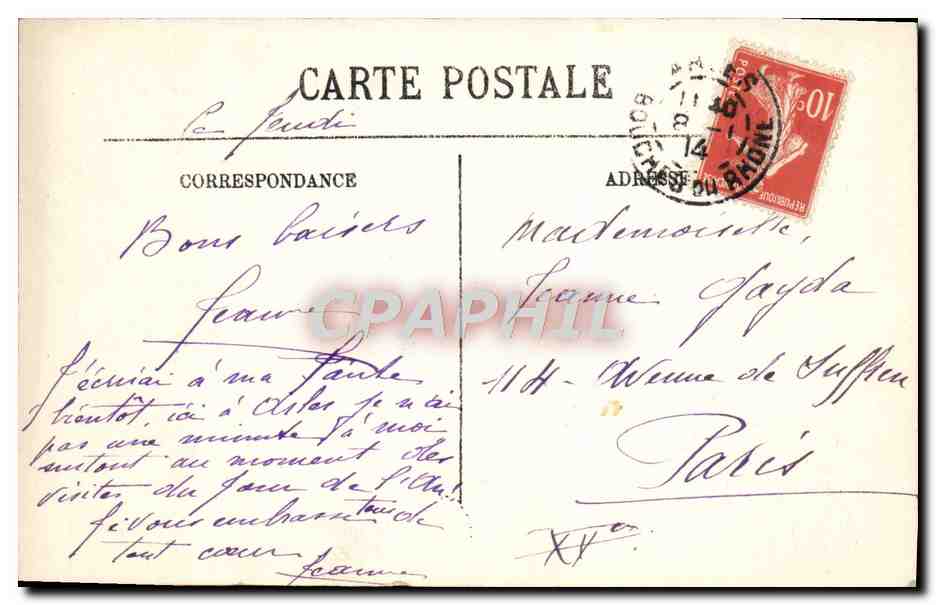 CARTE POSTALE
Le Jeudi
CORRESPONDANCE
Bons baisers
Jeanne
J'écrirai à ma Tante
bientôt, ici à Arles je n'ai
pas une minute à moi
surtout au moment des
visites du Jour de l'An!
Je vous embrasse tous de
tout cœur
Jeanne
ADRESSE
Mademoiselle,
Jeanne Gayda
114 - Avenue de Suffren
Paris
XVe
BOUCHES DU RHONE
14
10c
REPUBLIQUE
CPAPHIL